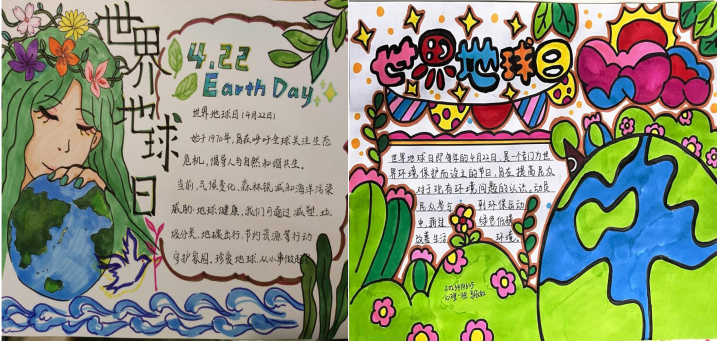 世界地球日
4.22
Earth Day
世界地球日(4月22日)
始于1970年,旨在呼吁全球关注生态
危机,倡导人与自然和谐共生。
当前,气候变化、森林锐减和海洋污染
威胁地球健康,我们可通过减塑、垃
圾分类、地碳出行、节约资源等行动
守护家园。珍爱地球,从小事做起
世界地球日
世界地球日即每年的4月22日,是一个专门为世
界环境保护而设立的节日,旨在提高民众
对于现有环境问题的认识。动员
民众参与到环保运动
中,通过绿色低碳
改善生活环境。